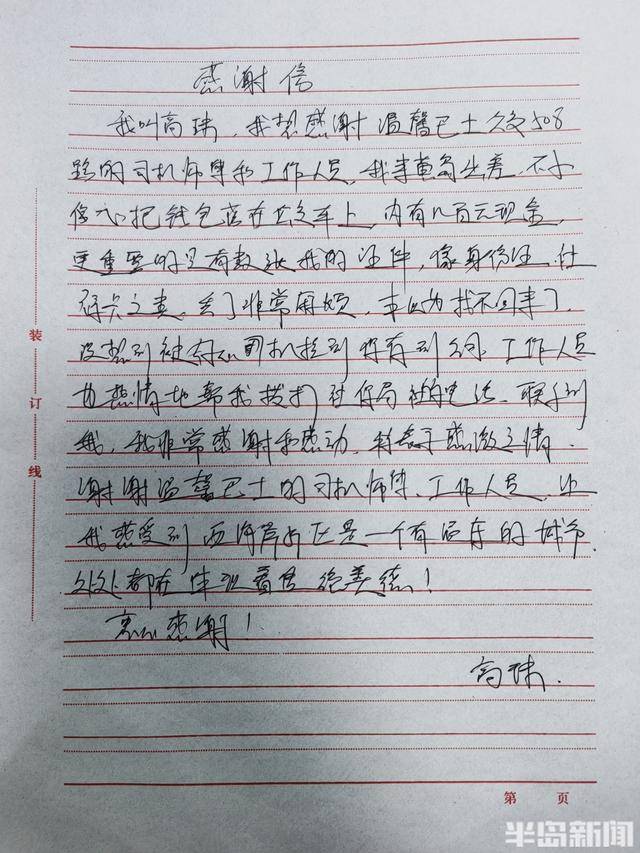 感谢信
我叫高珠，我想感谢温馨巴士公交508
路的司机师傅和工作人员，我来黄岛出差，不小
心把钱包落在公交车上，内有几百元现金，
更重要的是有数张我的证件，像身份证、社
保卡之类，丢了非常麻烦，本以为找不回来了，
没想到被司机捡到，工作人员
也热情地帮我拨打社保局的电话、联系到
我，我非常感谢和感动，特表示感激之情。
谢谢温馨巴士的司机师傅、工作人员，让
我感受到西海岸新区是一个有温度的城市，
处处都在
衷心感谢！
高珠.
装
订
线
第 页
半岛新闻